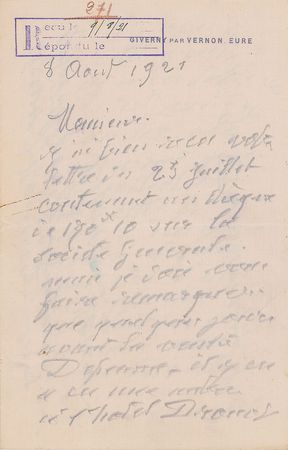 271
Reçu le 9/8/21
Dépot du le
GIVERNY PAR VERNON. EURE
8 Août 1921
Monsieur.
j'ai bien reçu votre
lettre du 23 juillet
contenant un chèque
de 180 10 sur la
société générale.
mais je dois vous
faire remarquer.
que quelques jours
avant la vente
il y en
a eu une autre
à l'hôtel Drouot